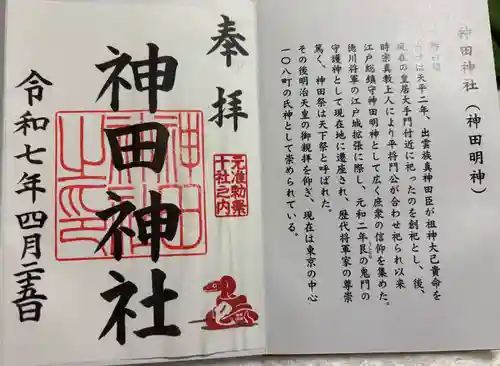 奉拝
神田神社
元准勅祭
十社之内
神田神社之印
令和七年四月二十五日
神田神社（神田明神）
は天平二年、出雲族真神田臣が祖神大己貴命を
現在の皇居大手門付近に祀ったのを創祀とし、後、
時宗真教上人により平将門公が合わせ祀られ以来
江戸総鎮守神田明神として広く庶衆の信仰を集めた。
徳川将軍の江戸城拡張に際し、元和二年艮の鬼門の
守護神として現在地に遷座され、歴代将軍家の尊崇
篤く、神田祭は天下祭と呼ばれた。
その後明治天皇の御親拝を仰ぎ、現在は東京の中心
一〇八町の氏神として崇められている。